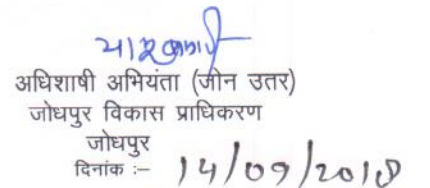 अधिशाषी अभियंता (जोन उतर)
जोधपुर विकास प्राधिकरण
जोधपुर
दिनांक :- 14/09/2018